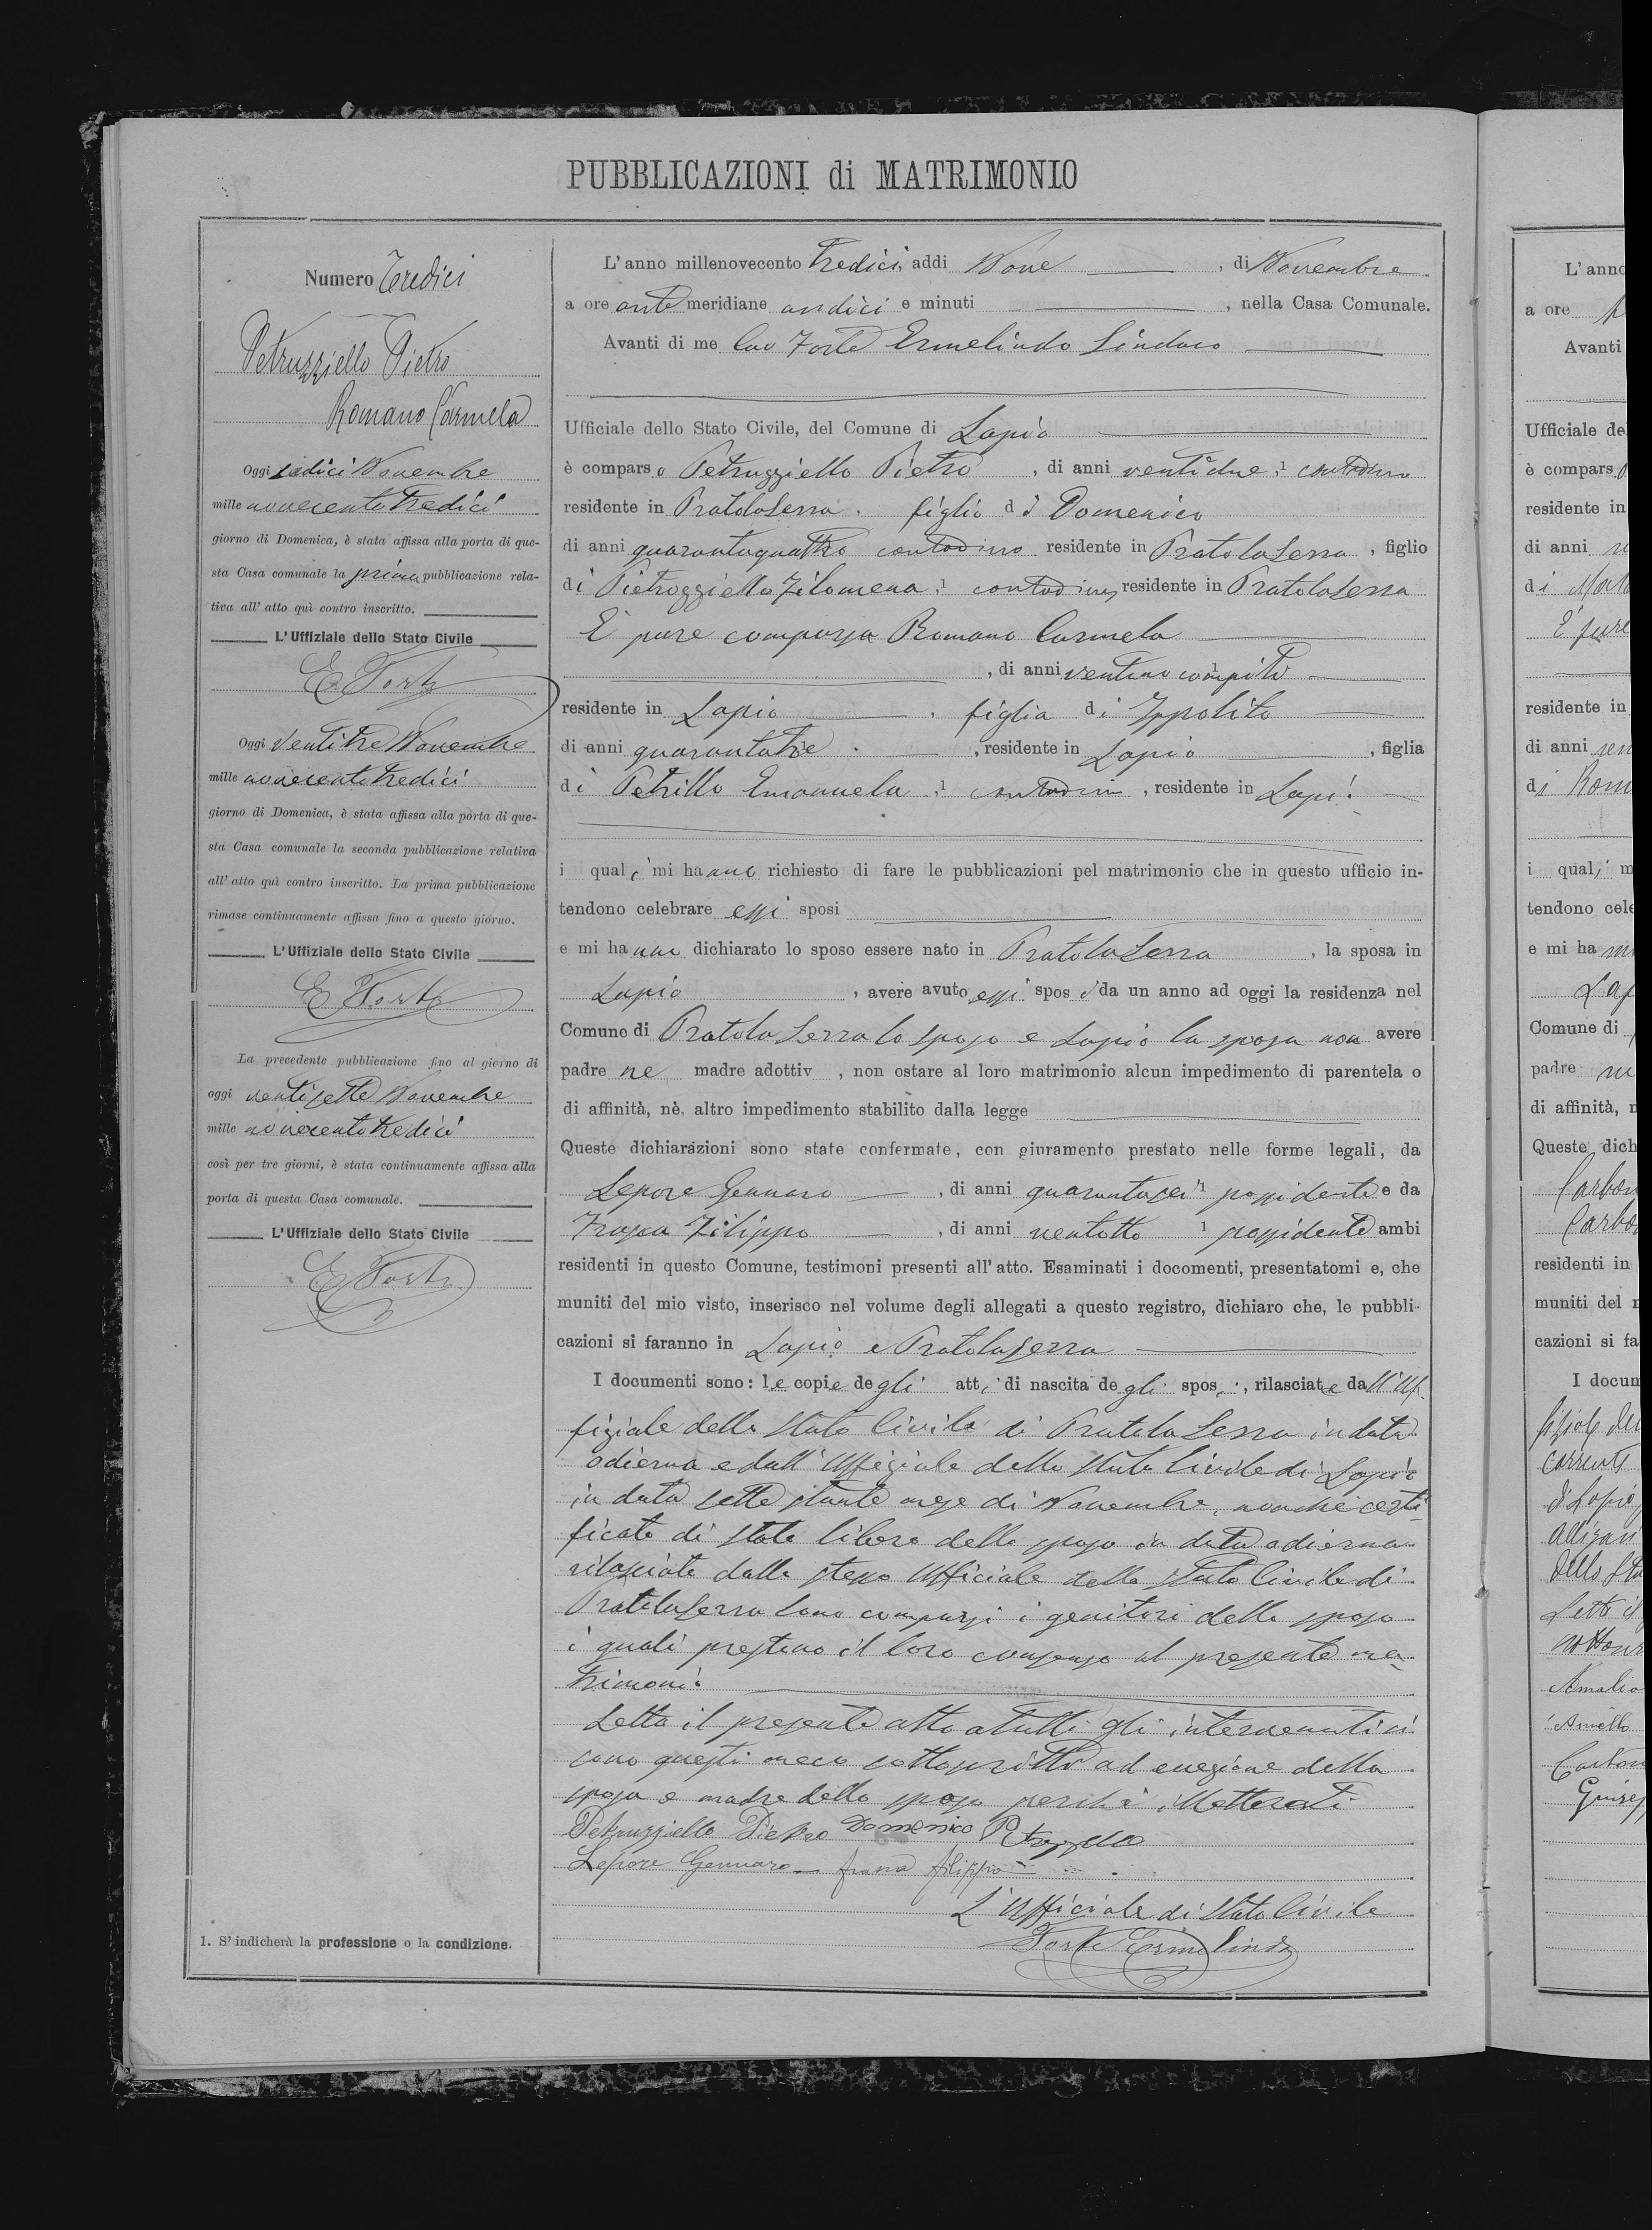 PUBBLICAZIONI di MATRIMONIO
Numero Tredici
Petruzziello Pietro
Romano Carmela
Oggi sedici Novembre
mille novecentotredici
giorno di Domenica, è stata affissa alla porta di que-
sta Casa comunale la prima pubblicazione rela-
tiva all' atto quì contro inscritto.
L'Uffiziale dello Stato Civile
E Forte
Oggi ventitre Novembre
mille novecentotredici
giorno di Domenica, è stata affissa alla porta di que-
sta Casa comunale la seconda pubblicazione relativa
all' atto quì contro inscritto. La prima pubblicazione
rimase continuamente affissa fino a questo giorno.
L'Uffiziale dello Stato Civile
E Forte
La precedente pubblicazione fino al giorno di
oggi ventisette Novembre
mille novecentotredici
così per tre giorni, è stata continuamente affissa alla
porta di questa Casa comunale.
L'Uffiziale dello Stato Civile
E Forte
1. S' indicherà la professione o la condizione.
L' anno millenovecento tredici, addi Nove, di Novembre
a ore antemeridiane undici e minuti , nella Casa Comunale.
Avanti di me Cav Forte Ermelindo Sindaco
Ufficiale dello Stato Civile, del Comune di Lapio
è comparso Petruzziello Pietro, di anni ventidue, 1 contadino
residente in Pratolaserra, figlio di Domenico
di anni quarantaquattro contadino residente in Pratolaserra, figlio
di Pietrozziello Filomena, 1 contadina, residente in Pratolaserra
È pure comparsa Romano Carmela
, di anni ventuno compiti 1
residente in Lapio, figlia di Ippolito
di anni quarantatre, residente in Lapio, figlia
di Petrillo Emanuela, 1 contadini, residente in Lapi.
i quali mi hanno richiesto di fare le pubblicazioni pel matrimonio che in questo ufficio in-
tendono celebrare essi sposi
e mi hanno dichiarato lo sposo essere nato in Pratolaserra, la sposa in
Lapio, avere avuto essi sposi da un anno ad oggi la residenza nel
Comune di Pratola Serra lo sposo e Lapio la sposa non avere
padre ne madre adottiv , non ostare al loro matrimonio alcun impedimento di parentela o
di affinità, nè altro impedimento stabilito dalla legge
Queste dichiarazioni sono state confermate, con giuramento prestato nelle forme legali, da
Lepore Gennaro, di anni quarantasei 1 possidente e da
Filippo, di anni ventotto 1 possidente ambi
residenti in questo Comune, testimoni presenti all' atto. Esaminati i documenti, presentatomi e, che
muniti del mio visto, inserisco nel volume degli allegati a questo registro, dichiaro che, le pubbli-
cazioni si faranno in Lapio e Pratolaserra
I documenti sono: le copie degli atti di nascita degli sposi, rilasciate dall'Uf-
fiziale dello Stato Civile di Pratola Serra in data
odierna e dall'Uffiziale dello Stato Civile di Lapio
in data sette stante mese di Novembre, nonchè certi-
ficato di stato libero dello sposo in data odierna
rilasciato dallo stesso Ufficiale dello Stato Civile di
Pratolaserra Sono comparsi i genitori dello sposo
i quali prestano il loro consenso al presente ma-
trimoni.
Letto il presente atto a tutti gli intervenuti si
sono questi meco sottoscritti ad eccezione della
sposa e madre dello sposo perchè illetterati
Petruzziello Pietro Domenico Petruzziello
Lepore Gennaro filippo
L'Ufficiale di Stato Civile
Forte Ermelindo
L' anno
a ore
Avanti
Ufficiale de
è compars
residente in
di anni
di
È pure
residente in
di anni
di Rom
i quali m
tendono cele
e mi ha
Lap
Comune di
padre
di affinità, n
Queste dich
Carbon
Carbo
residenti in
muniti del m
cazioni si fa
I docum
correnti
di Lapio
dello Sta
Letto il